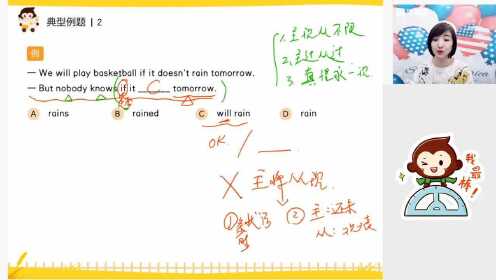 典型例题 | 2
例
— We will play basketball if it doesn't rain tomorrow.
— But nobody knows if it C tomorrow.
A rains B rained C will rain D rain
1. 主现从不限
2. 主过从过
3. 真理永一现
OK
主将从现
①
② 主:还未
从:
我最棒!